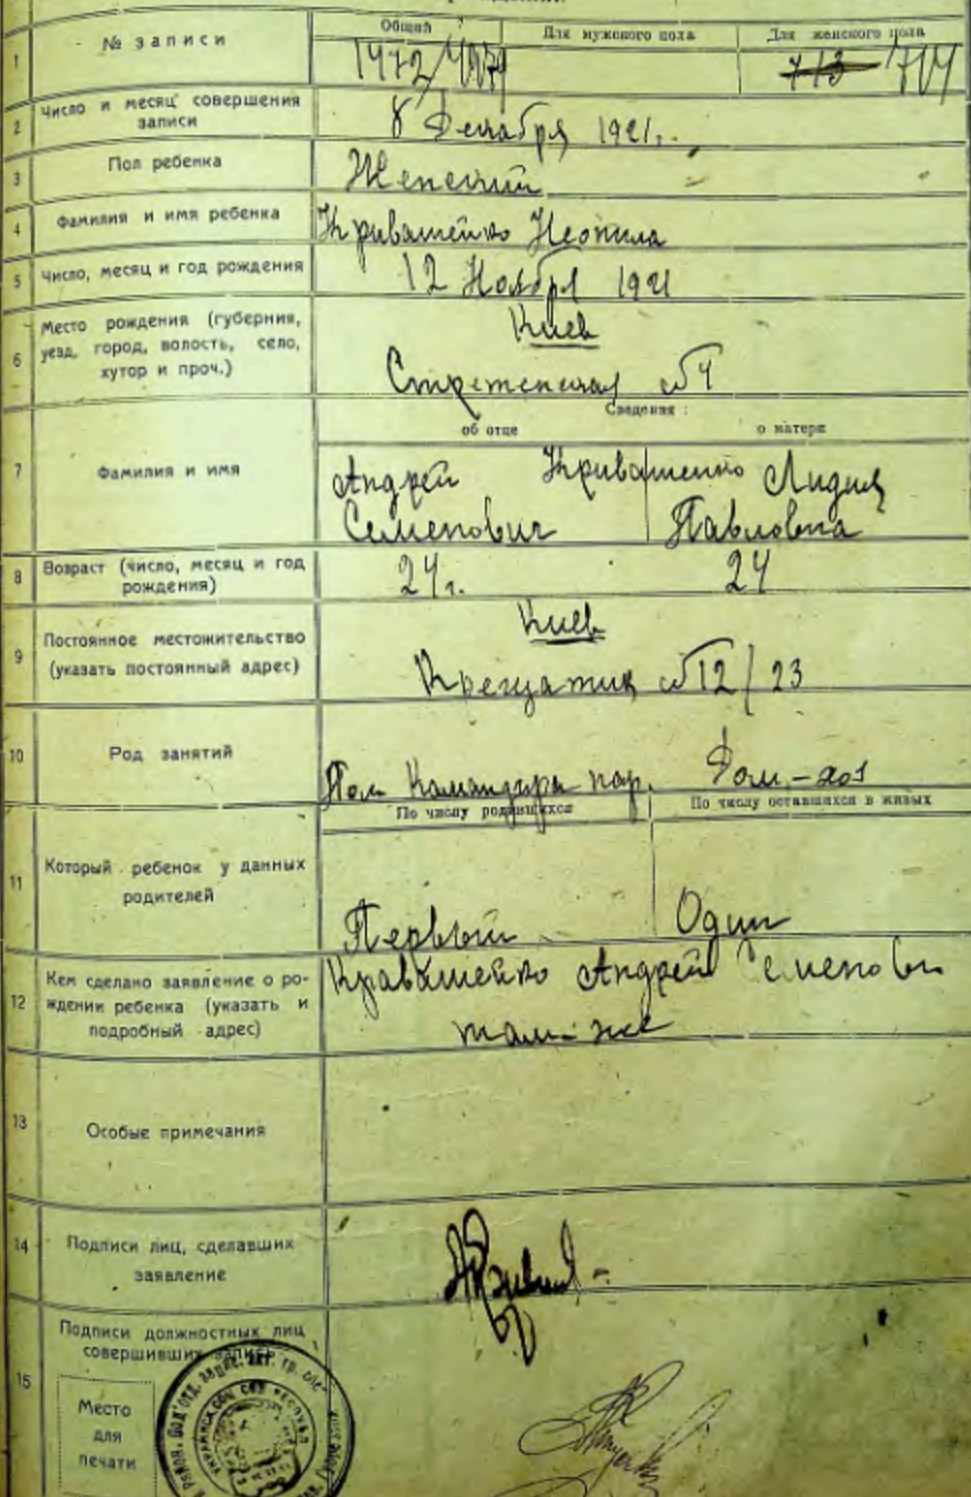 1
№ записи
Общий
Для мужского пола
Для женского пола
713 714
2
Число и месяц совершения
записи
8 Декабря 1921г.
3
Пол ребенка
Женский
4
Фамилия и имя ребенка
Неонила
5
Число, месяц и год рождения
12 Ноября 1921
6
Место рождения (губерния,
уезд, город, волость, село,
хутор и проч.)
Киев
Стретенская №
Сведения:
об отце
о матери
7
Фамилия и имя
Андрей Кривашенко Лидия
Семенович Павловна
8
Возраст (число, месяц и год
рождения)
24г. 24
9
Постоянное местожительство
(указать постоянный адрес)
Киев
Крещатик № 12/23
10
Род занятий
Пом Командира Дом.-хоз
11
Который ребенок у данных
родителей
По числу родившихся
По числу оставшихся в живых
Первый
Один
12
Кем сделано заявление о ро-
ждении ребенка (указать и
подробный адрес)
Андрей Семенович
там-же
13
Особые примечания
14
Подписи лиц, сделавших
заявление
15
Подписи должностных лиц
совершивших запись
Место
для
печати